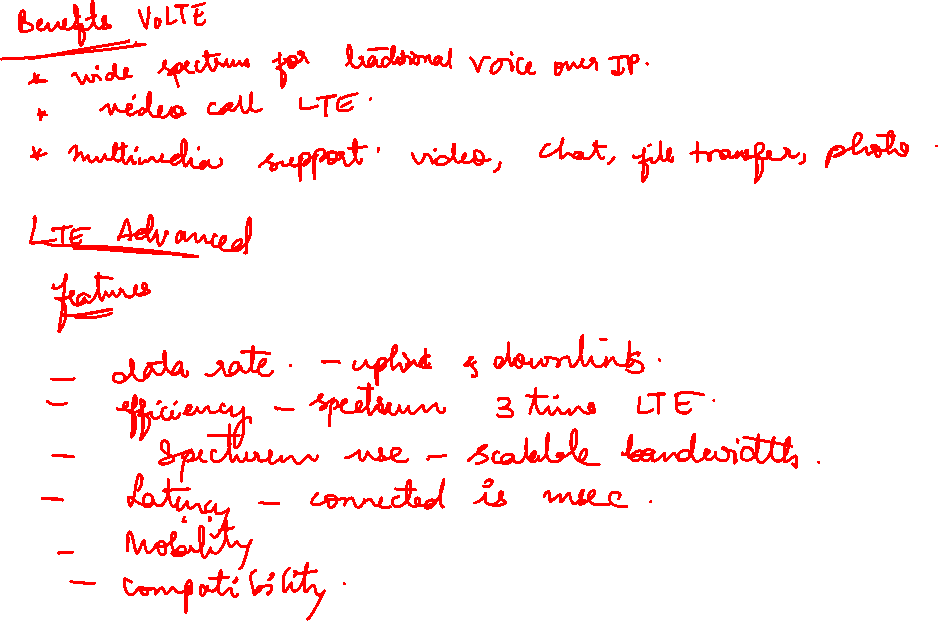 Benefits VoLTE
* wide spectrum for traditional voice over IP.
* video call LTE.
* multimedia support. video, chat, file transfer, photo.
LTE Advanced
features
- data rate. - uplink & downlink.
- efficiency - spectrum 3 times LTE.
- Spectrum use - scalable bandwidths.
- Latency - connected is msec.
- Mobility
- compatibility.